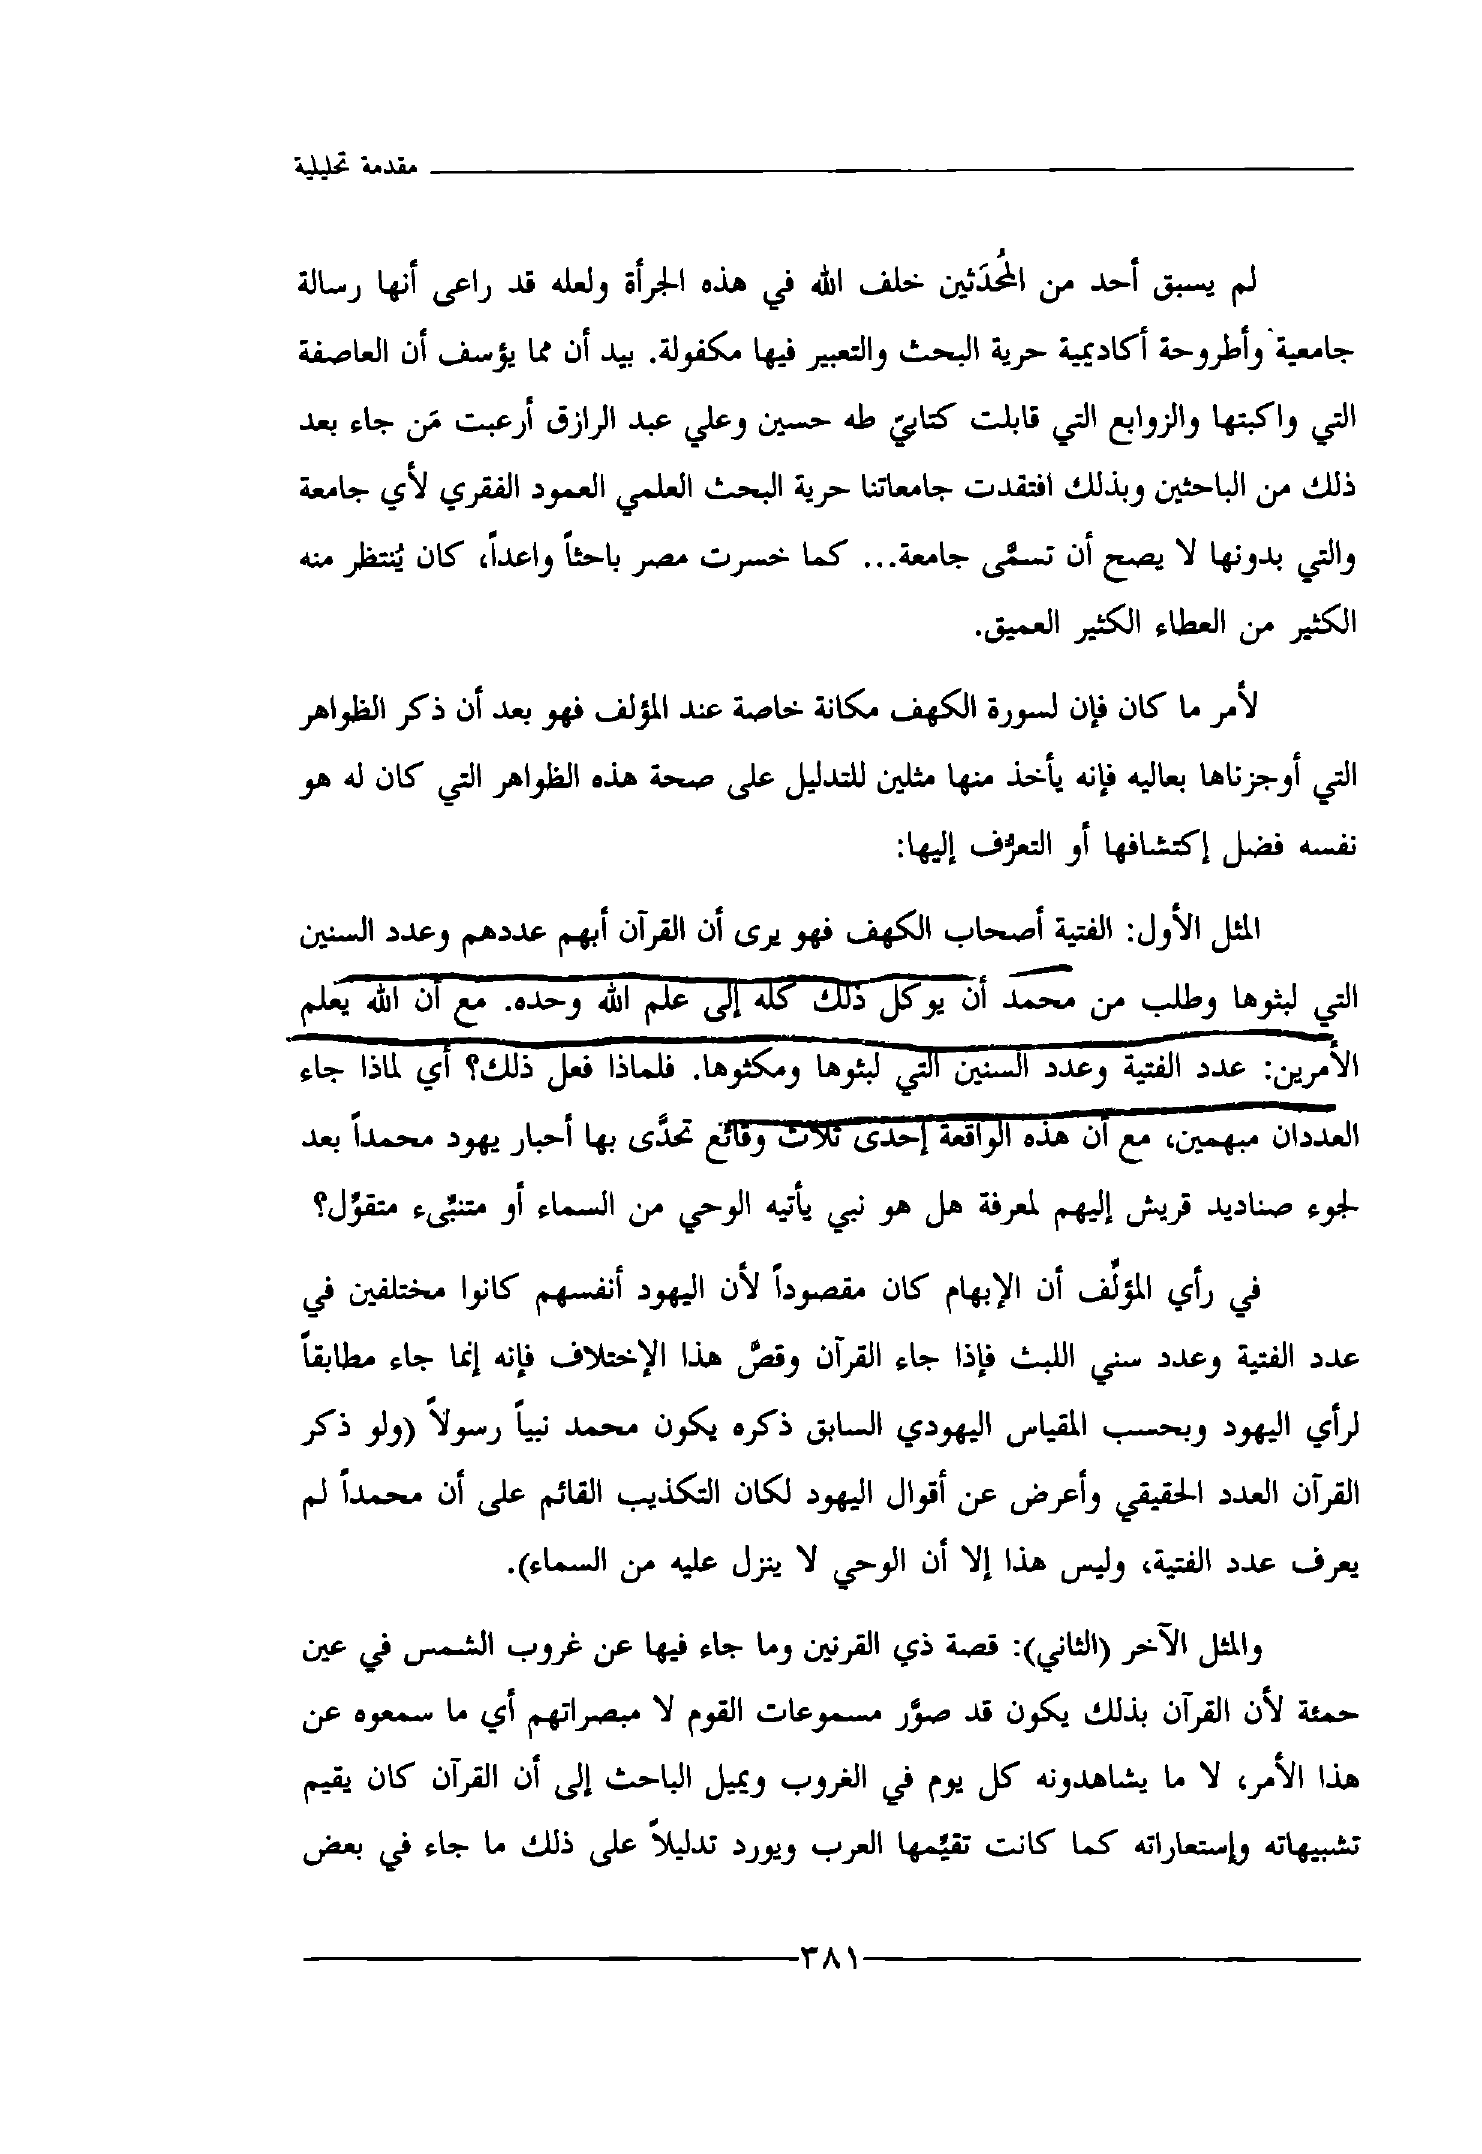 مقدمة تحليلية
لم يسبق أحد من المُحدَثين خلف الله في هذه الجرأة ولعله قد راعى أنها رسالة
جامعية وأطروحة أكاديمية حرية البحث والتعبير فيها مكفولة. بيد أن مما يؤسف أن العاصفة
التي واكبتها والزوابع التي قابلت كتابيّ طه حسين وعلي عبد الرازق أرعبت مَن جاء بعد
ذلك من الباحثين وبذلك افتقدت جامعاتنا حرية البحث العلمي العمود الفقري لأي جامعة
والتي بدونها لا يصح أن تسمَّى جامعة... كما خسرت مصر باحثاً واعداً، كان يُنتظر منه
الكثير من العطاء الكثير العميق.
لأمر ما كان فإن لسورة الكهف مكانة خاصة عند المؤلف فهو بعد أن ذكر الظواهر
التي أوجزناها بعاليه فإنه يأخذ منها مثلين للتدليل على صحة هذه الظواهر التي كان له هو
نفسه فضل إكتشافها أو التعرُّف إليها:
المثل الأول: الفتية أصحاب الكهف فهو يرى أن القرآن أبهم عددهم وعدد السنين
التي لبثوها وطلب من محمد أن يوكل ذلك كله إلى علم الله وحده. مع أن الله يعلم
الأمرين: عدد الفتية وعدد السنين التي لبثوها ومكثوها. فلماذا فعل ذلك؟ أي لماذا جاء
العددان مبهمين، مع أن هذه الواقعة إحدى ثلاث وقائع تحدَّى بها أحبار يهود محمداً بعد
لجوء صناديد قريش إليهم لمعرفة هل هو نبي يأتيه الوحي من السماء أو متنبِّىء متقوِّل؟
في رأي المؤلِّف أن الإبهام كان مقصوداً لأن اليهود أنفسهم كانوا مختلفين في
عدد الفتية وعدد سني اللبث فإذا جاء القرآن وقصَّ هذا الإختلاف فإنه إنما جاء مطابقاً
لرأي اليهود وبحسب المقياس اليهودي السابق ذكره يكون محمد نبياً رسولاً (ولو ذكر
القرآن العدد الحقيقي وأعرض عن أقوال اليهود لكان التكذيب القائم على أن محمداً لم
يعرف عدد الفتية، وليس هذا إلا أن الوحي لا ينزل عليه من السماء).
والمثل الآخر (الثاني): قصة ذي القرنين وما جاء فيها عن غروب الشمس في عين
حمئة لأن القرآن بذلك يكون قد صوَّر مسموعات القوم لا مبصراتهم أي ما سمعوه عن
هذا الأمر، لا ما يشاهدونه كل يوم في الغروب ويميل الباحث إلى أن القرآن كان يقيم
تشبيهاته وإستعاراته كما كانت تقيِّمها العرب ويورد تدليلاً على ذلك ما جاء في بعض
٣٨١